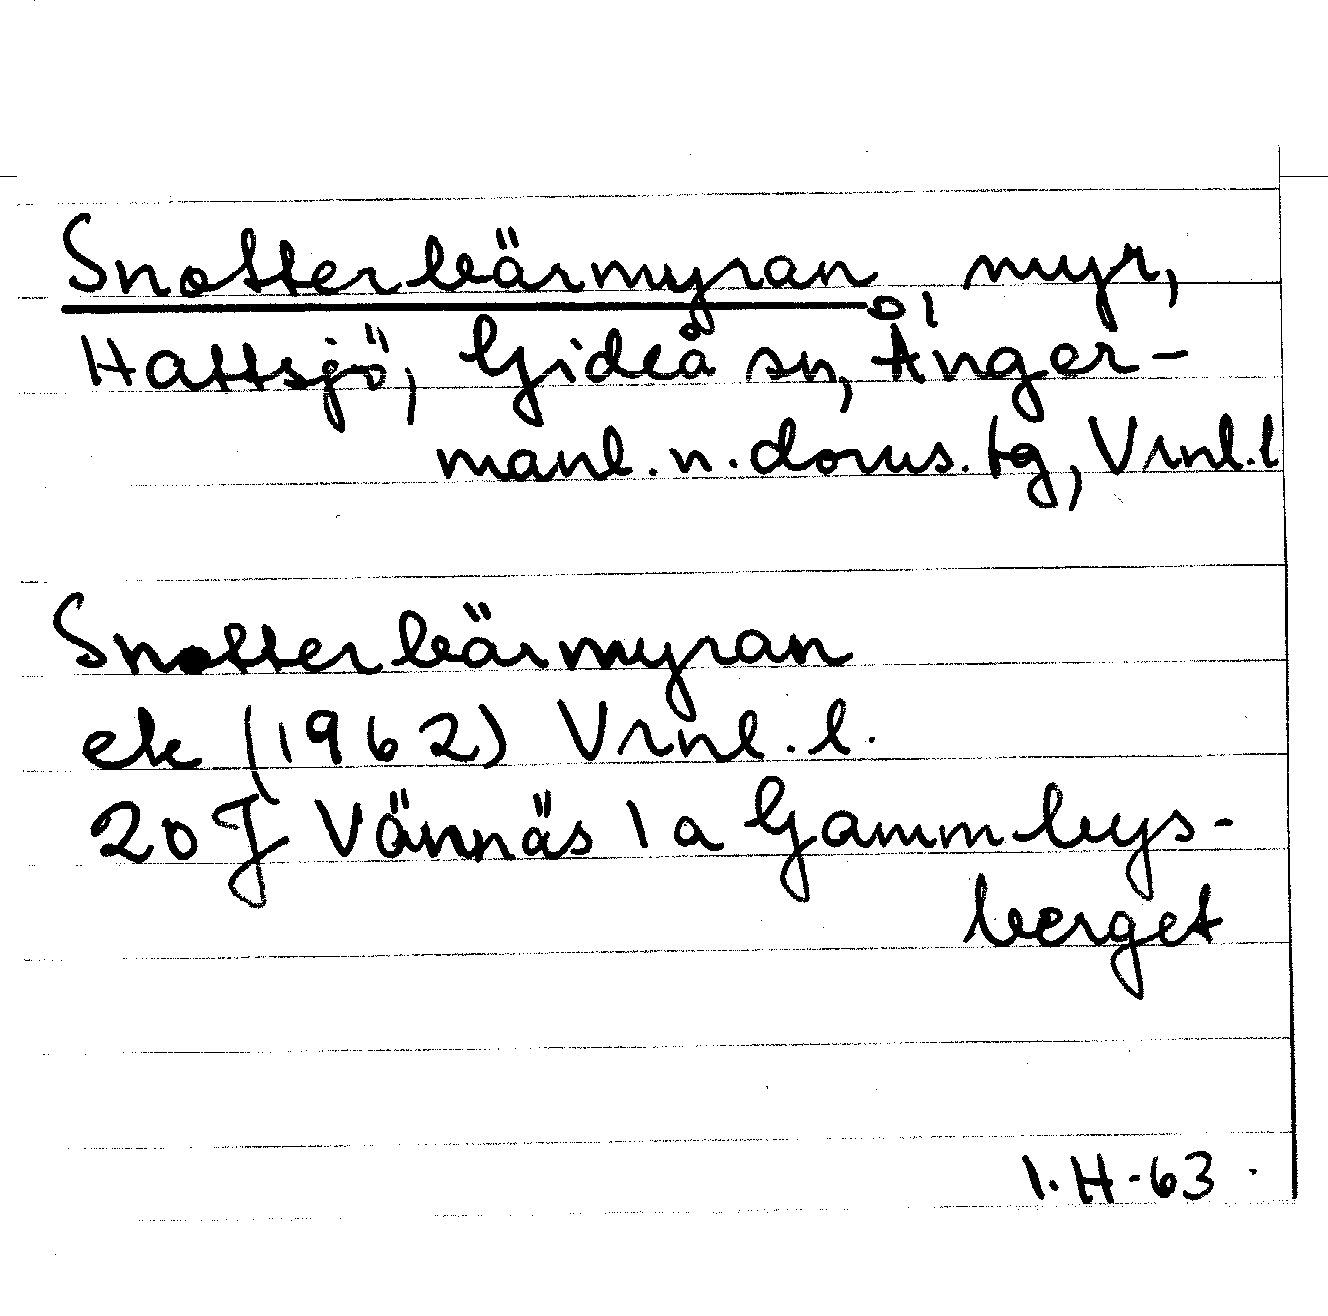 Snotterbärmyran, myr,
Hattsjö, Gideå sn, Ånger-
manl. n. doms. tg, Vrnl. l
Snotterbärmyran
ek (1962) Vrnl. l.
20 J Vännäs 1 a Gammbys-
berget
I. H-63